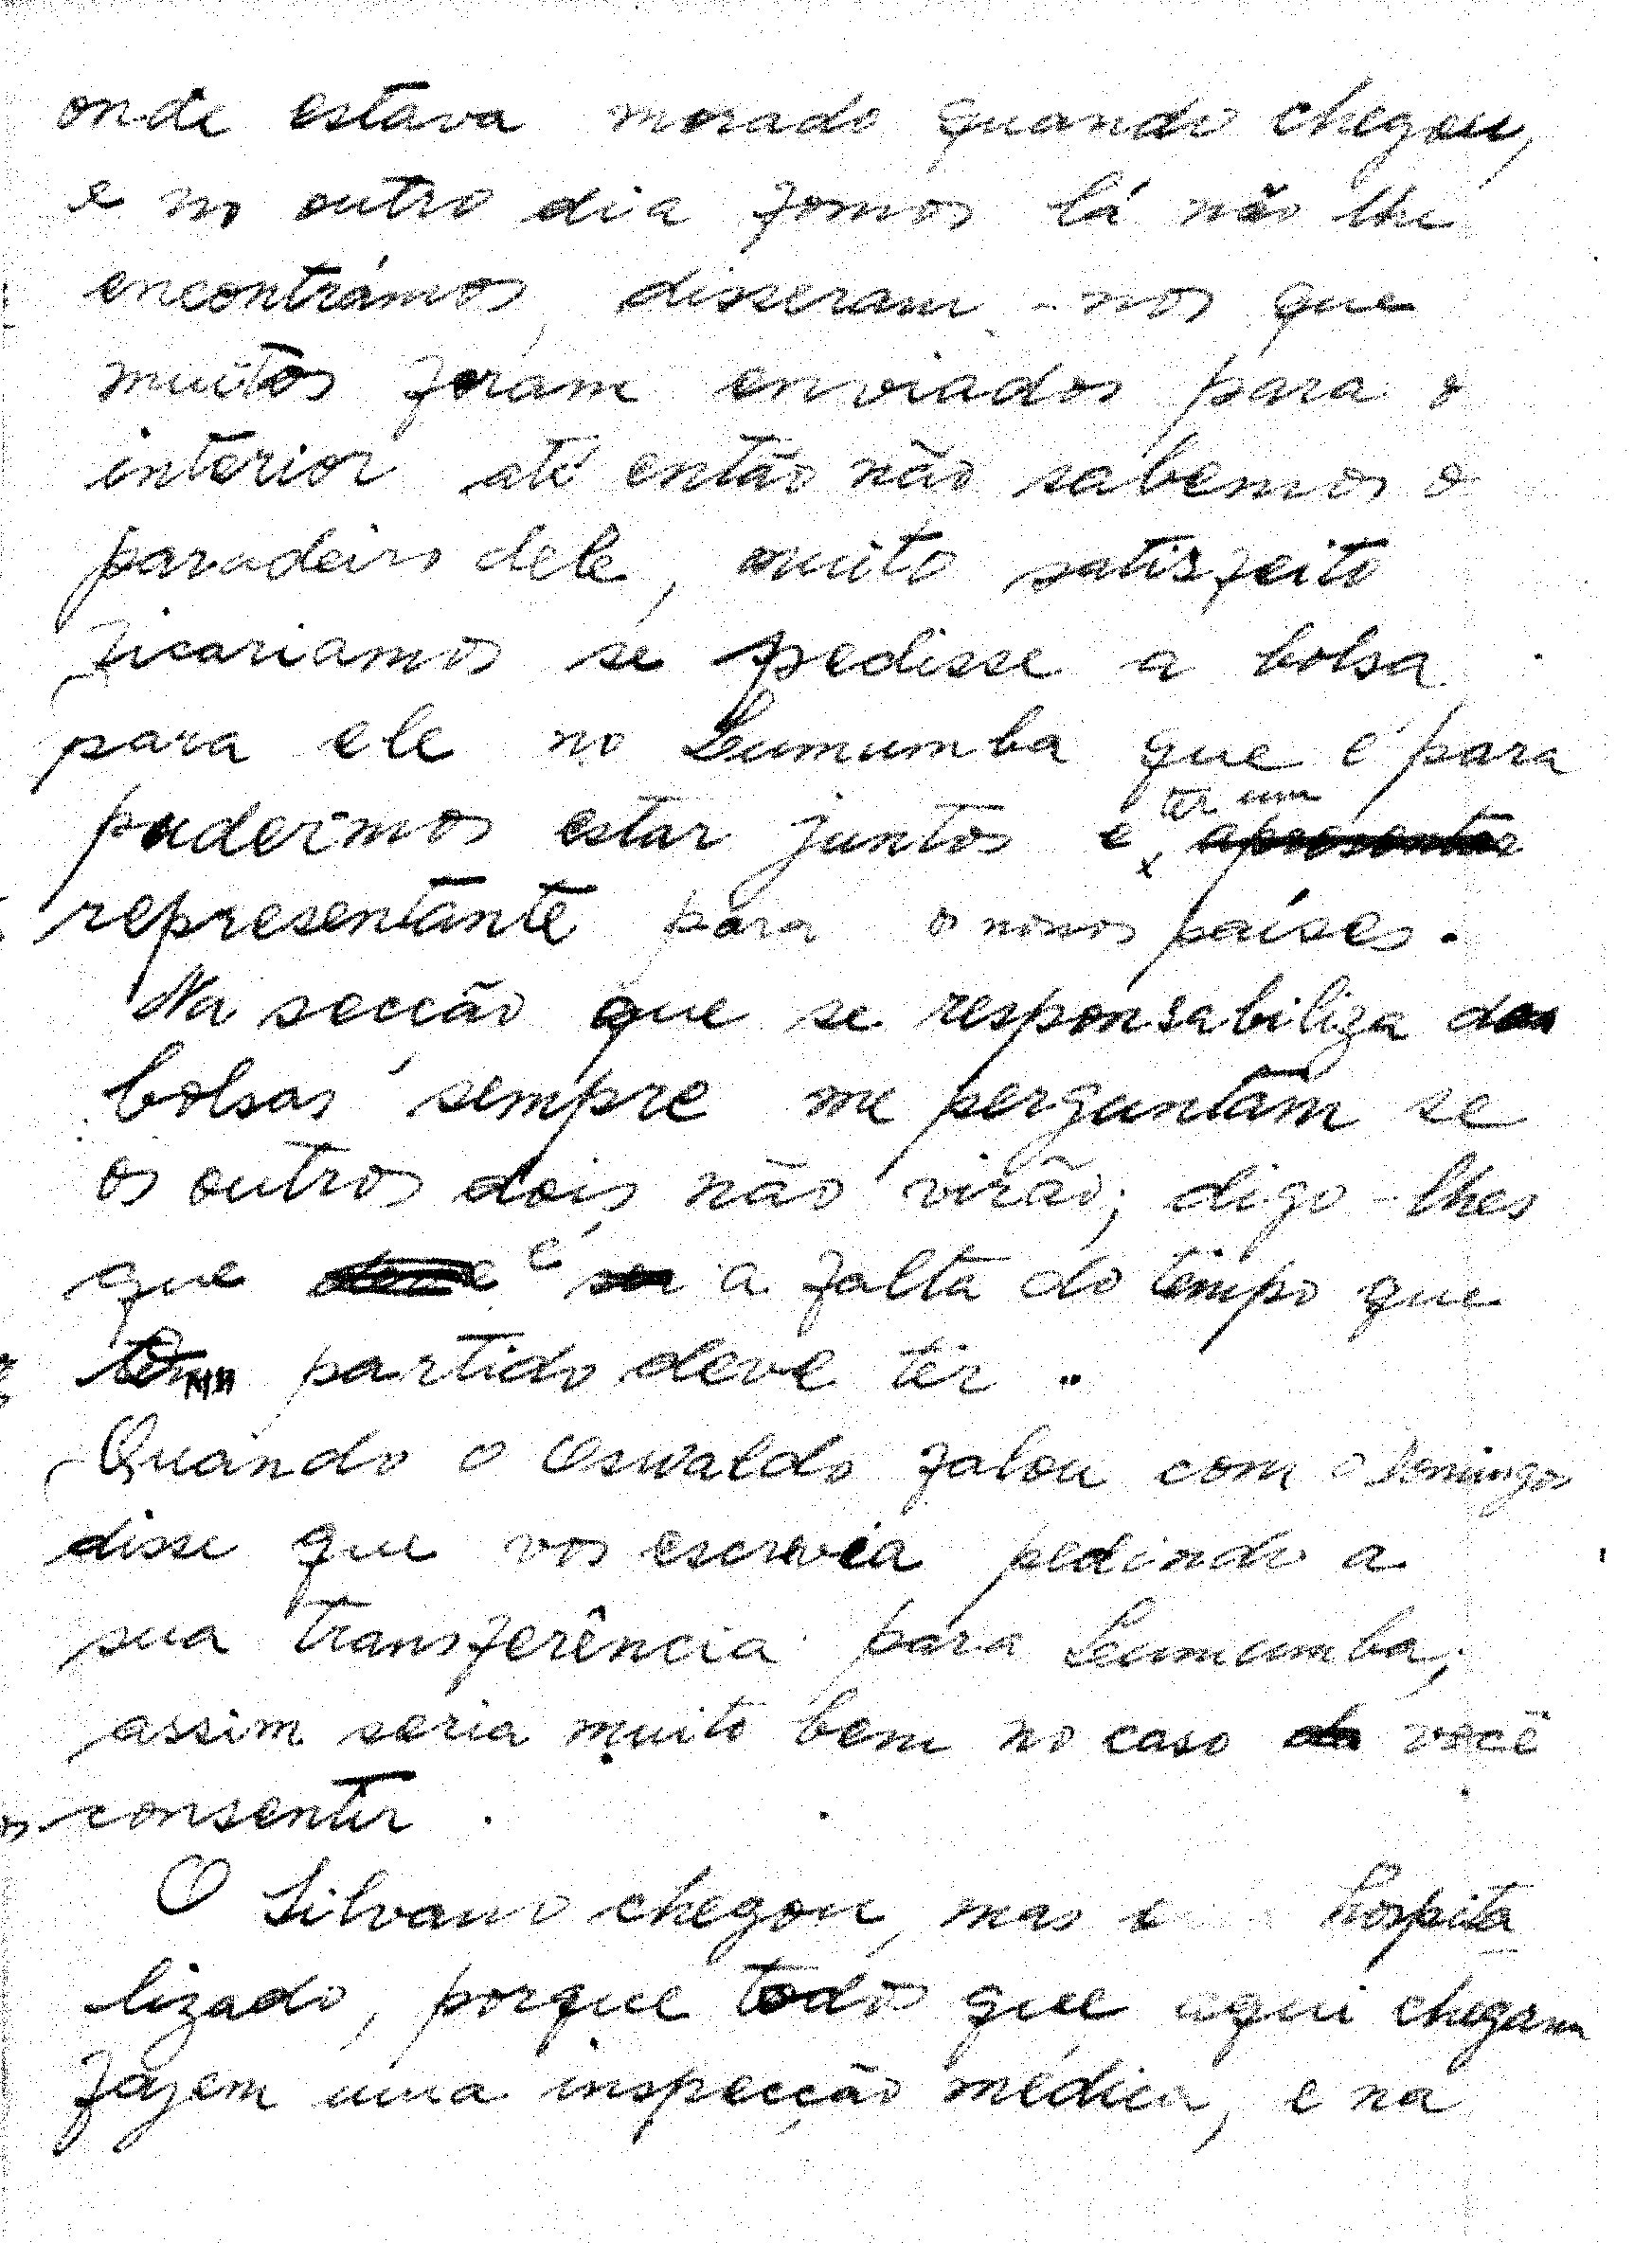 onde estava morado quando chegou,
e no outro dia fomos lá não lhe
encontrámos, disseram-nos que
muitos foram enviados para o
interior até então não sabemos o
paradeiro dele, muito satisfeito
ficariamos se pedisse a bolsa
para ele no Lumumba que é para
pudermos estar juntos e ter um
representante para o nosso países.
Na secção que se responsabiliza das
bolsas sempre me perguntam se
os outros dois não virão; digo-lhes
que é a falta do tempo que
partido deve ter.
Quando o Oswaldo falou com o Domingos
disse que vos escrevia pedindo a
sua transferência para Lumumba,
assim seria muito bem no caso você
consentir.
O Silvano chegou, mas e hospita
lizado, porque todos que aqui chegam
fazem uma inspecção médica, e na